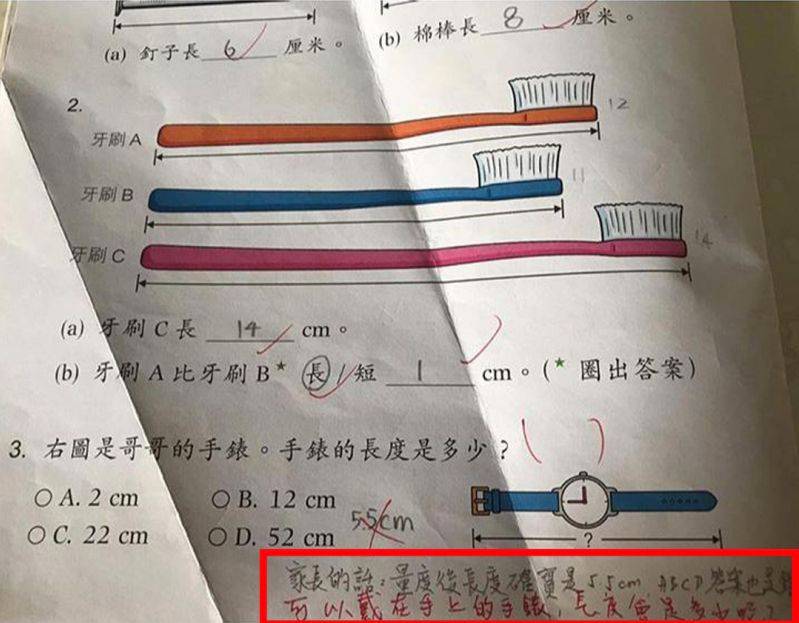 (a) 釘子長 6 厘米。
(b) 棉棒長 8 厘米。
2.
牙刷 A
12
牙刷 B
11
牙刷 C
14
(a) 牙刷 C 長 14 cm。
(b) 牙刷 A 比牙刷 B★ 長/短 1 cm。(★ 圈出答案)
3. 右圖是哥哥的手錶。手錶的長度是多少?( )
A. 2 cm
B. 12 cm
C. 22 cm
D. 52 cm
5.5cm
?
家長的話:量度後長度確實是5.5cm, ABCD答案也是錯
可以戴在手上的手錶,長度會是多少呢?